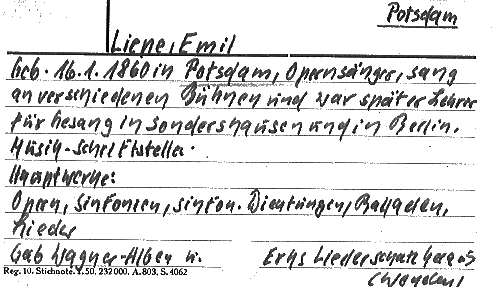 Potsdam
Liepe, Emil
Geb. 16.1.1860 in Potsdam, Opernsänger, sang
an verschiedenen Bühnen und war später Lehrer
für Gesang in Sondershausen und in Berlin.
Musik-Schriftsteller.
Hauptwerke:
Opern, Sinfonien, sinfon. Dichtungen, Balladen,
Lieder
Gab Wagner-Alben u. Erks Liederschatz heraus
Reg. 10. Stichnote. T. 50. 232000. A. 803. S. 4062